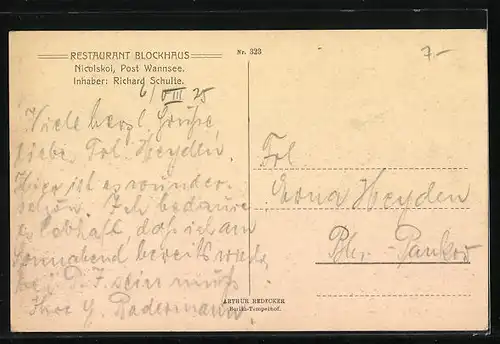 RESTAURANT BLOCKHAUS
Nicolskoi, Post Wannsee.
Inhaber: Richard Schulte.
Nr. 323
7-
6/VIII 25
Viele herzl. Grüße,
liebe Frl. Heyden.
Hier ist es wunder-
schön. Ich bedaure
lebhaft, daß ich am
Sonnabend bereits wieder
bei sein muß
Ihre Radermann.
Frl
Erna Heyden
Bln.-Pankow
ARTHUR REDECKER
Berlin-Tempelhof.